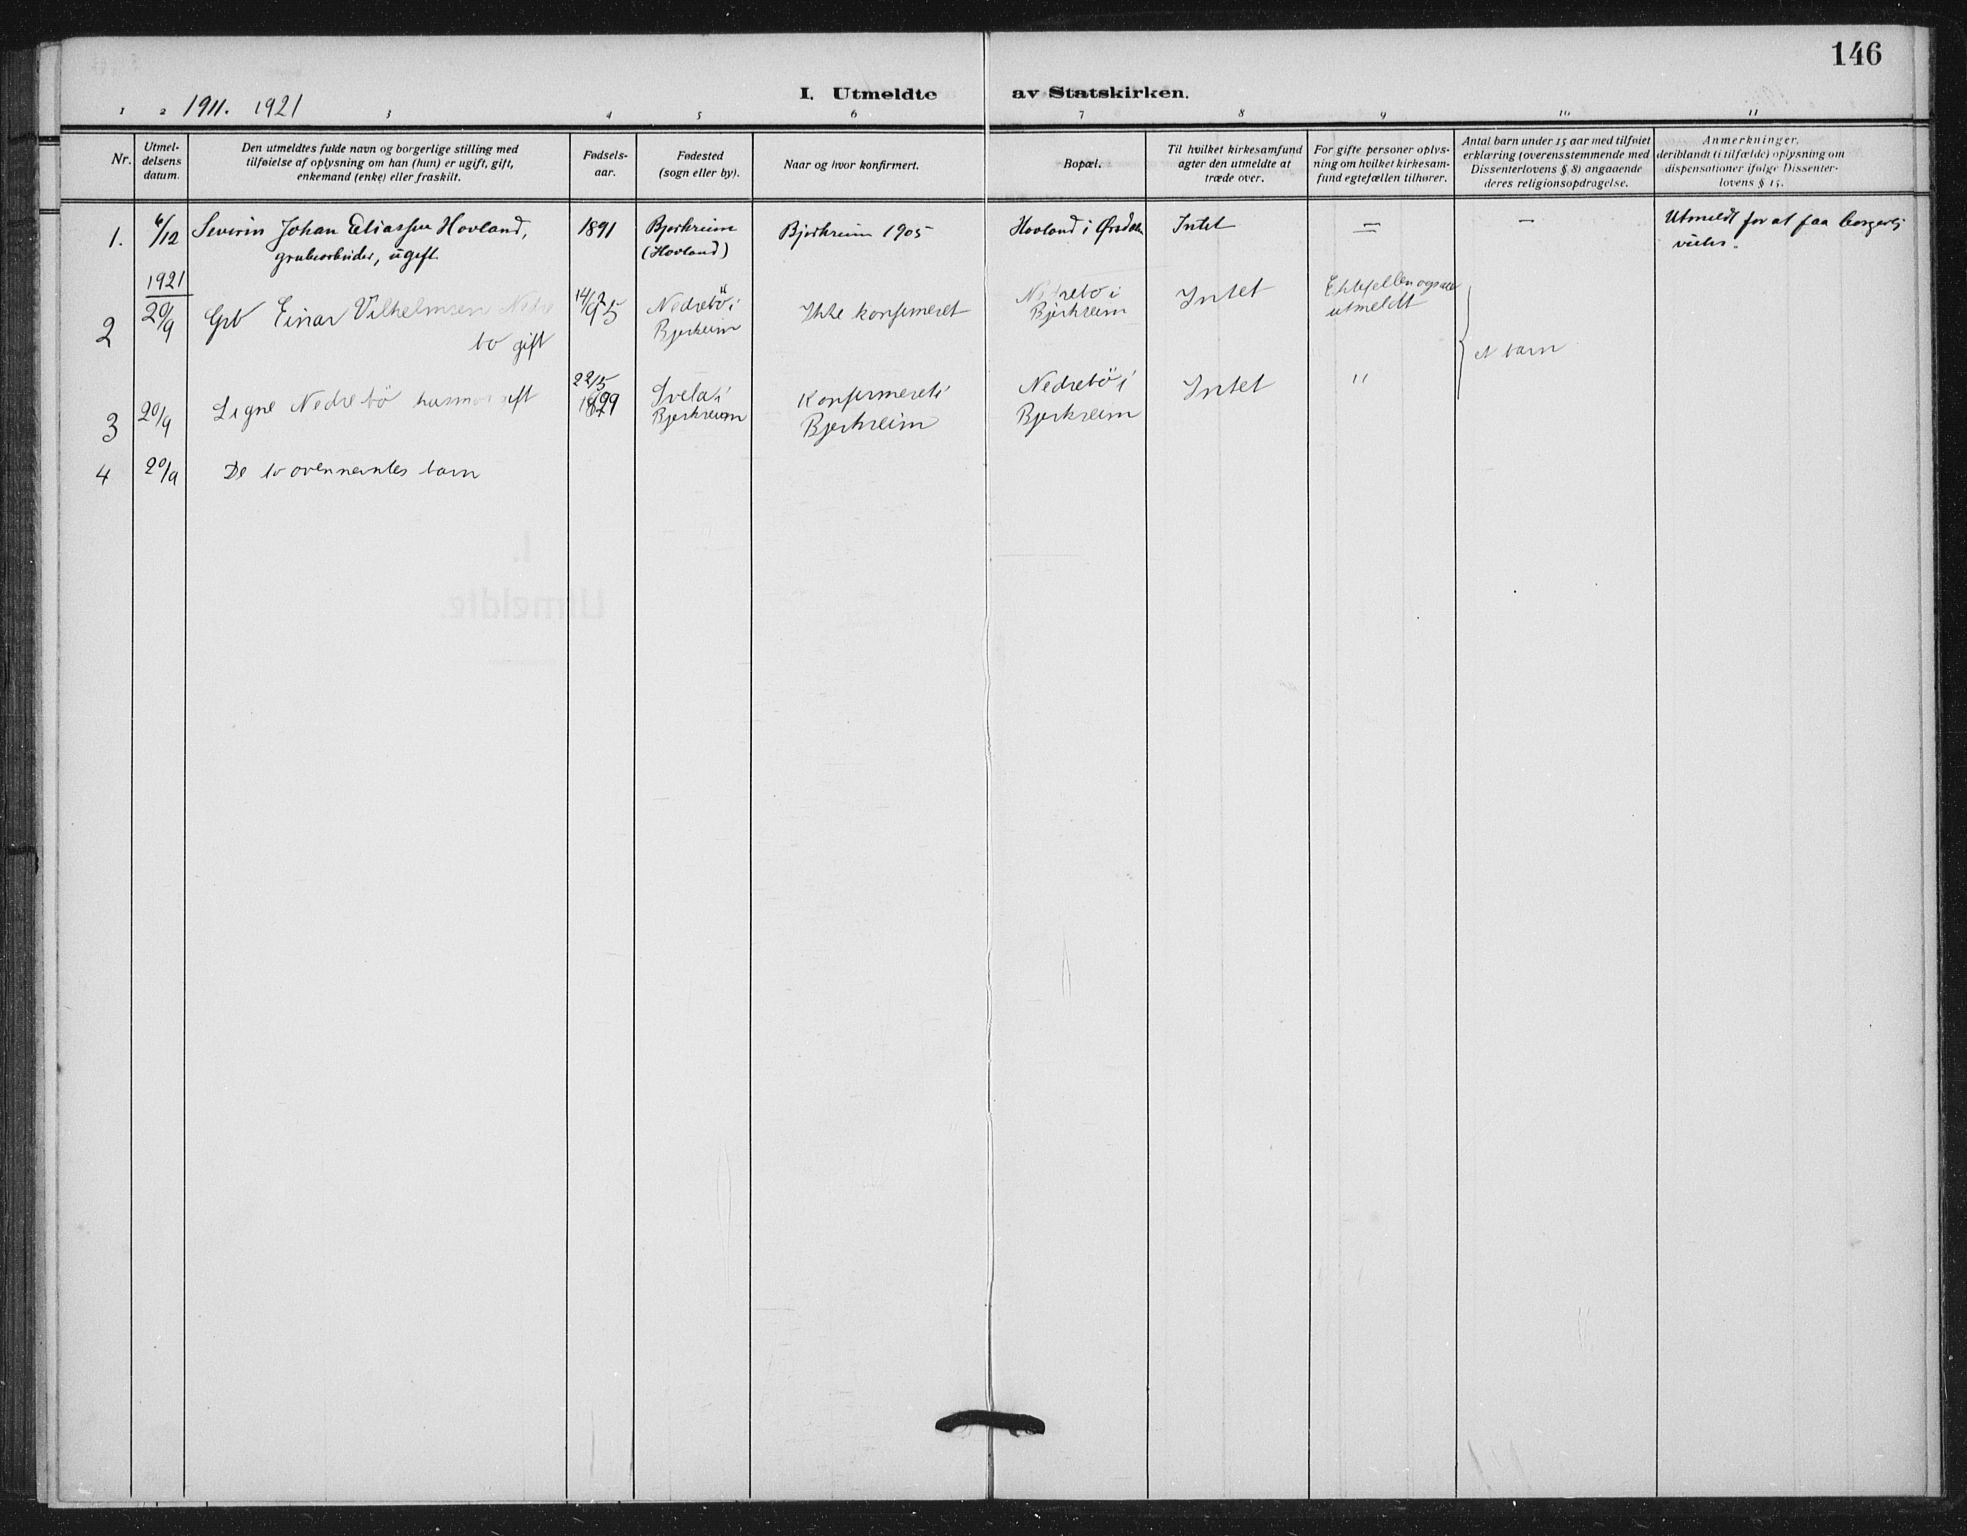 146
I. Utmeldte av Statskirken.
1911. 1921
1 2 3 4 5 6 7 8 9 10 11
Nr.
Utmel-
delsens
datum.
Den utmeldtes fulde navn og borgerlige stilling med
tilføielse af oplysning om han (hun) er ugift, gift,
enkemand (enke) eller fraskilt.
Fødsels-
aar.
Fødested
(sogn eller by).
Naar og hvor konfirmert.
Bopæl.
Til hvilket kirkesamfund
agter den utmeldte at
træde over.
For gifte personer oplys-
ning om hvilket kirkesam-
fund egtefællen tilhører.
Antal barn under 15 aar med tilføiet
erklæring (overensstemmende med
Dissenterlovens § 8) angaaende
deres religionsopdragelse.
Anmerkninger,
deriblandt (i tilfælde) oplysning om
dispensationer ifølge Dissenter-
lovens § 15.
1.
6/12
Severin Johan Eliassen Hovland,
grubearbeider, ugift
1891
Bjerkreim
(Hovland)
Bjerkreim 1905
Hovland i Ørsdalen
Intet
—
—
Utmeldt for at faa borgerlig
vielse.
1921
2
20/9
Grb Einar Vilhelmsen Nedre
bo gift
14/12
95
Nedrebö i
Bjerkreim
Ikke konfirmeret
Nedrebo i
Bjerkreim
Intet
Ektefellen ogsaa
utmeldt
et barn
3
20/9
Signe Nedrebö husmor gift
22/5
1899
Svela i
Bjerkreim
Konfirmeret i
Bjerkreim
Nedrebö i
Bjerkreim
Intet
"
4
20/9
De to ovennevntes barn